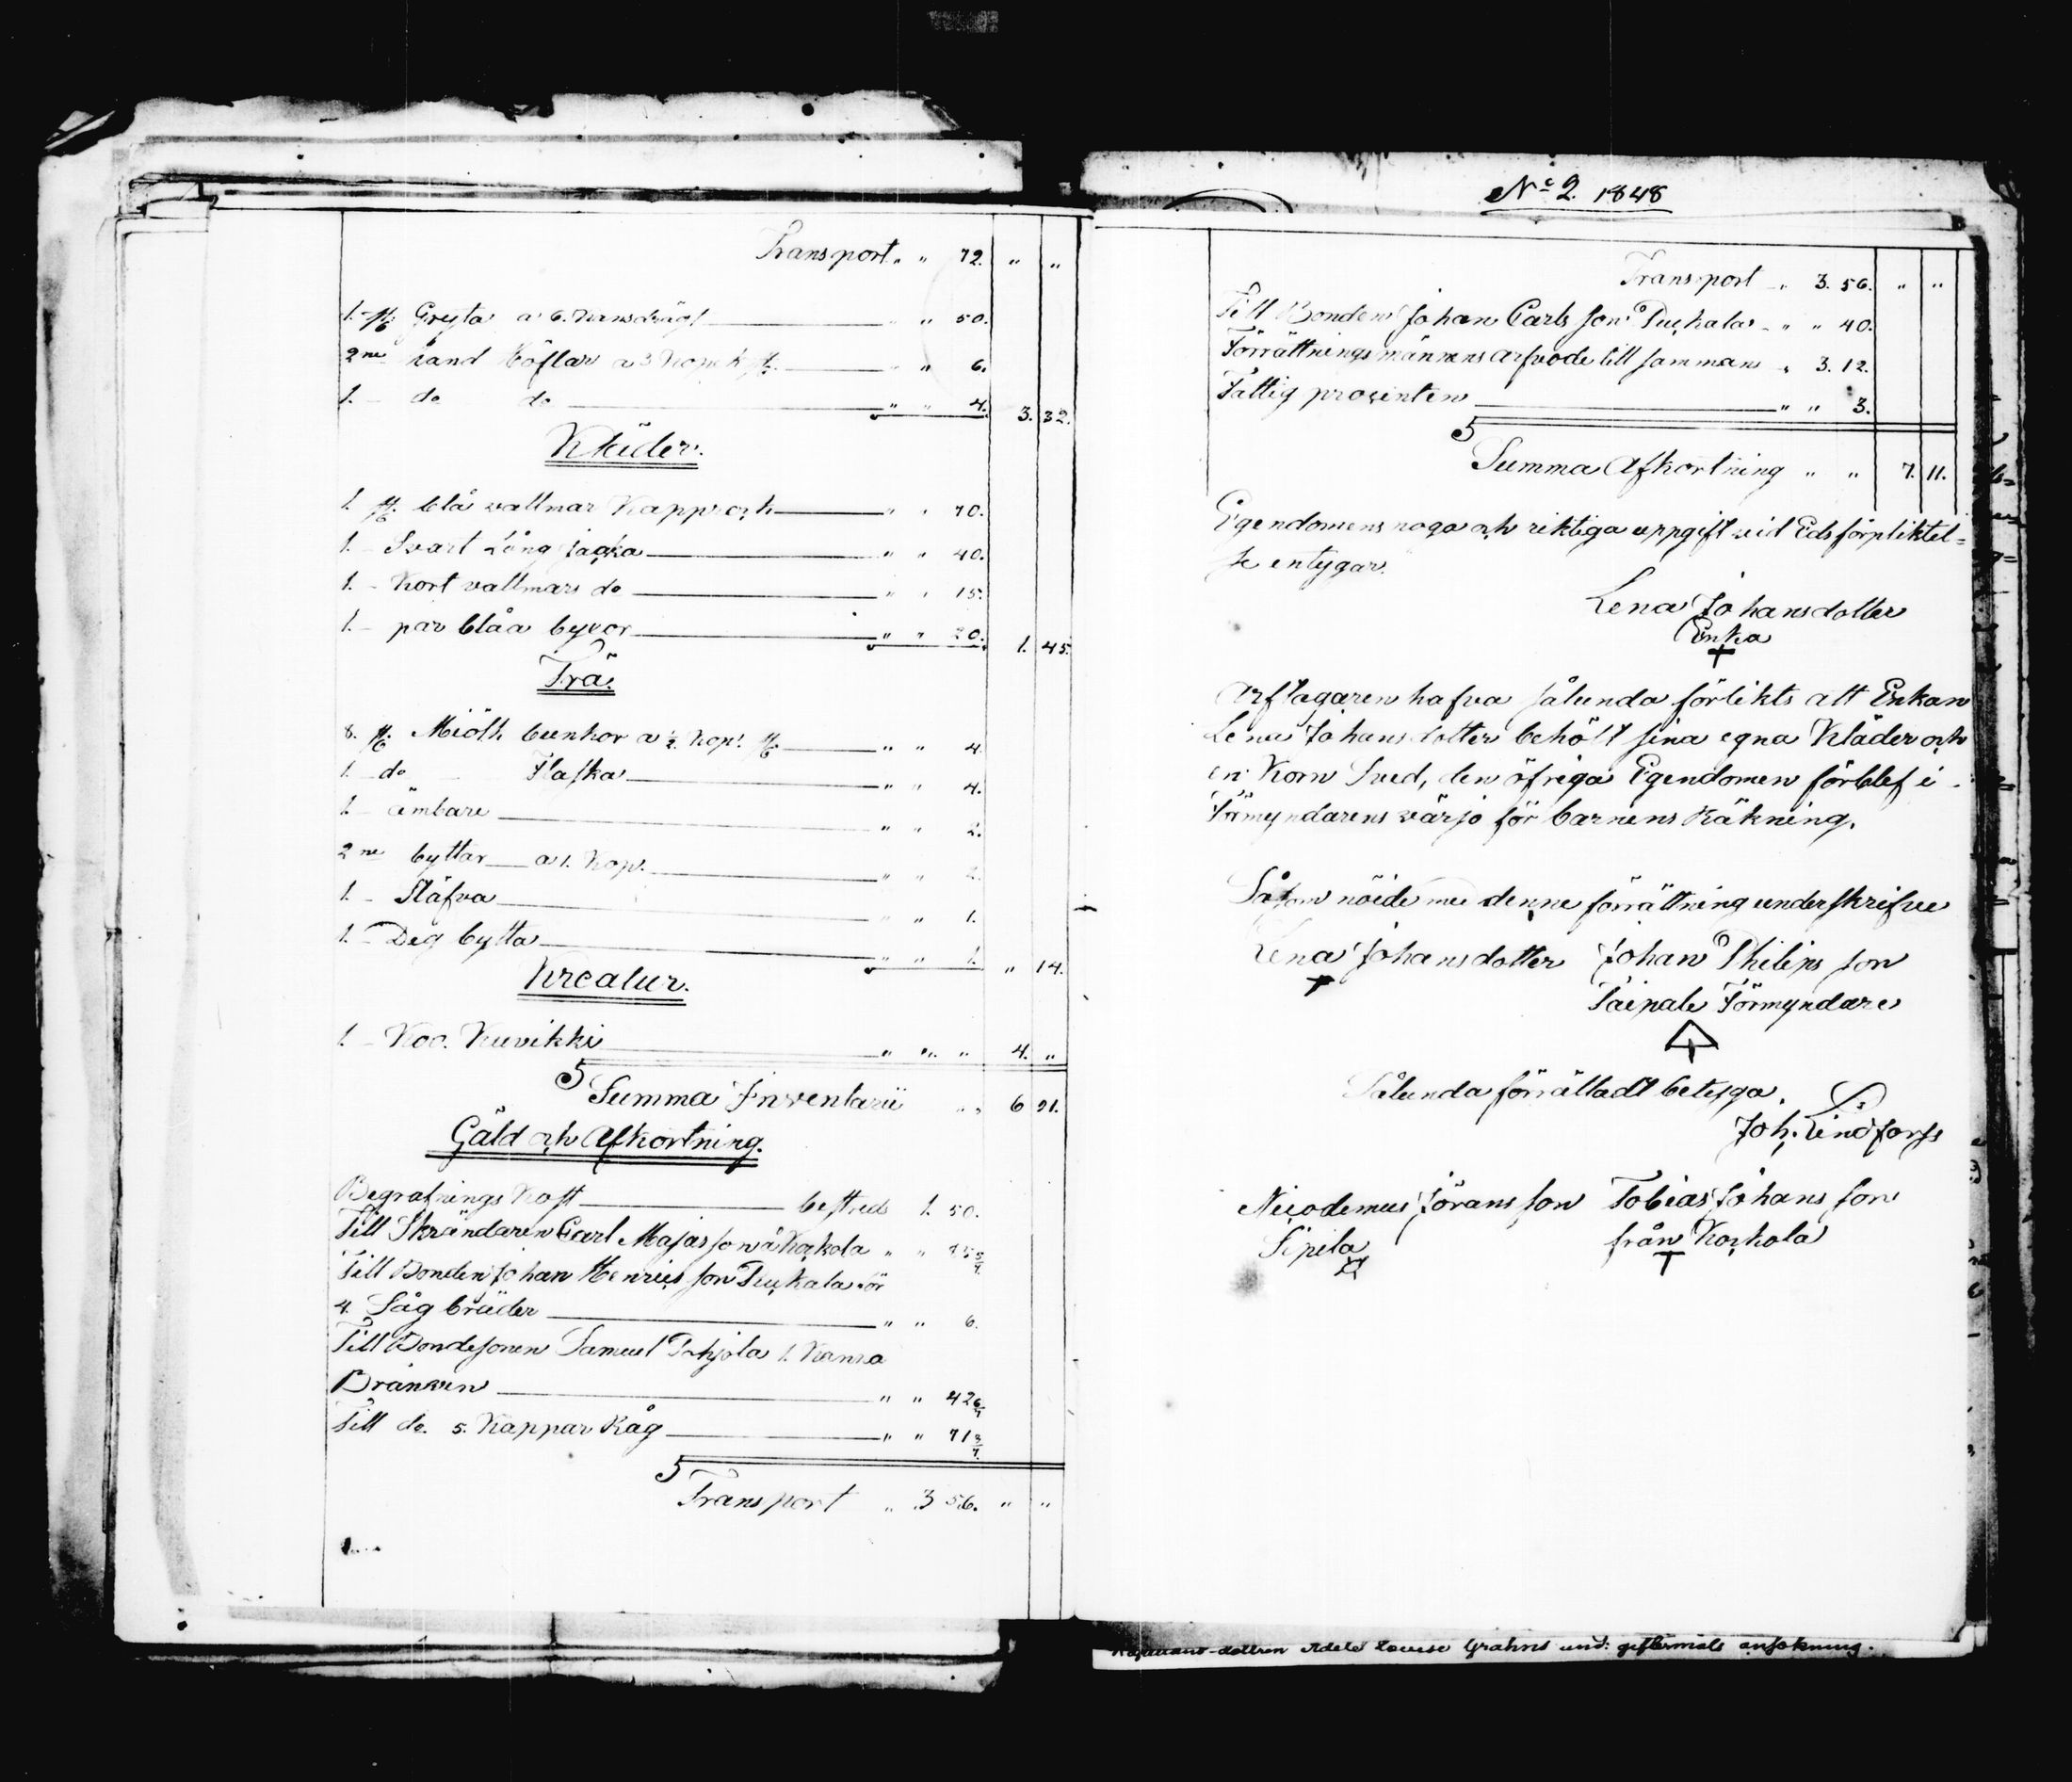 Transport " " 72. " "
1. st: Gryta a 6. " " 50.
2ne rand Töflar a 3 Kopek st. " " 6.
1. do do " " 4. 3. 32.
Kläder.
1. st. blå vallmar Kapprock " " 70.
1. Svart Lång jacka " " 40.
1. Kort vallmars do " " 15.
1. par blåa byxor " " 20. 1. 45.
Trä.
8. st. Miölk bunkor a ½ Kop. st. " " 4.
1. do Flaska " " 4.
1. ämbare " " 2.
2ne byttor a 1. Kop. " " 2.
1. Stäfva " " 1.
1. Deg bytta " " 1. " 14.
Kreatur.
1. Koo. Kuvikki " " " 4. "
Summa Inventarii " " 6 91.
Gäld och Afkortning.
Begrafnings Kost bestreds 1. 50.
Till Skrändaren Carl Majasson å Korkola " " 85 5/7.
Till Bonden Johan Henricsson Puckala för
4. Såg bräder " " 6.
Till Bondesonen Samuel Pohjola 1. Kanna
Bränvin " " 42 6/7
Till do. 5. Kappar Råg " " 71 3/7.
Transport " 3 56. " "
No 2. 1848
Transport " 3. 56. " "
Till Bonden Johan Carlsson Puckala " " 40.
Förrättningsmännens arfvode till sammans " 3. 12.
Fattig procenten " " 3.
Summa Afkortning " " 7. 11.
Egendomens noga och riktiga uppgift vid Edsförpliktel=
se entygar.
Lena Johansdotter
Enka
Arftagaren hafva sålunda förlikts att Enkan
Lena Johansdotter behölt sina egna Kläder och
en Korn Sved, den öfriga Egendomen förblef i
Förmyndarens värjo för barnens Räkning.
Såsom nöide med denne förrättning underskrifve
Lena Johansdotter Johan Philipsson
Taipale Förmyndare
Sålunda förrättadt betyga.
Joh. Lindforss
Nicodemus Jöransson Tobias Johansson
Sipila från Korkola
dottren Adele Louise Grahns und: giftermåls ansökning.